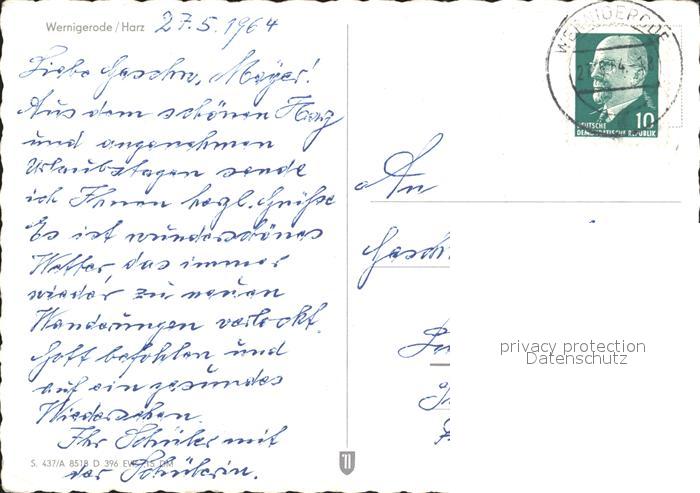 Wernigerode / Harz 27.5.1964
Liebe Geschw. Meyer!
Aus dem schönen Harz
und angenehmen
Urlaubstagen sende
ich Ihnen herzl. Grüße
Es ist wunderschönes
Wetter, das immer
wieder zu neuen
Wanderungen verlockt.
Gott befohlen und
auf ein gesundes
Wiedersehen.
Ihr Schüler mit
der Schülerin.
S. 437/A 8518 D 396 EVP 15 DM
WERNIGERODE
10
DEUTSCHE
DEMOKRATISCHE REPUBLIK
An
Gesch
privacy protection
Datenschutz